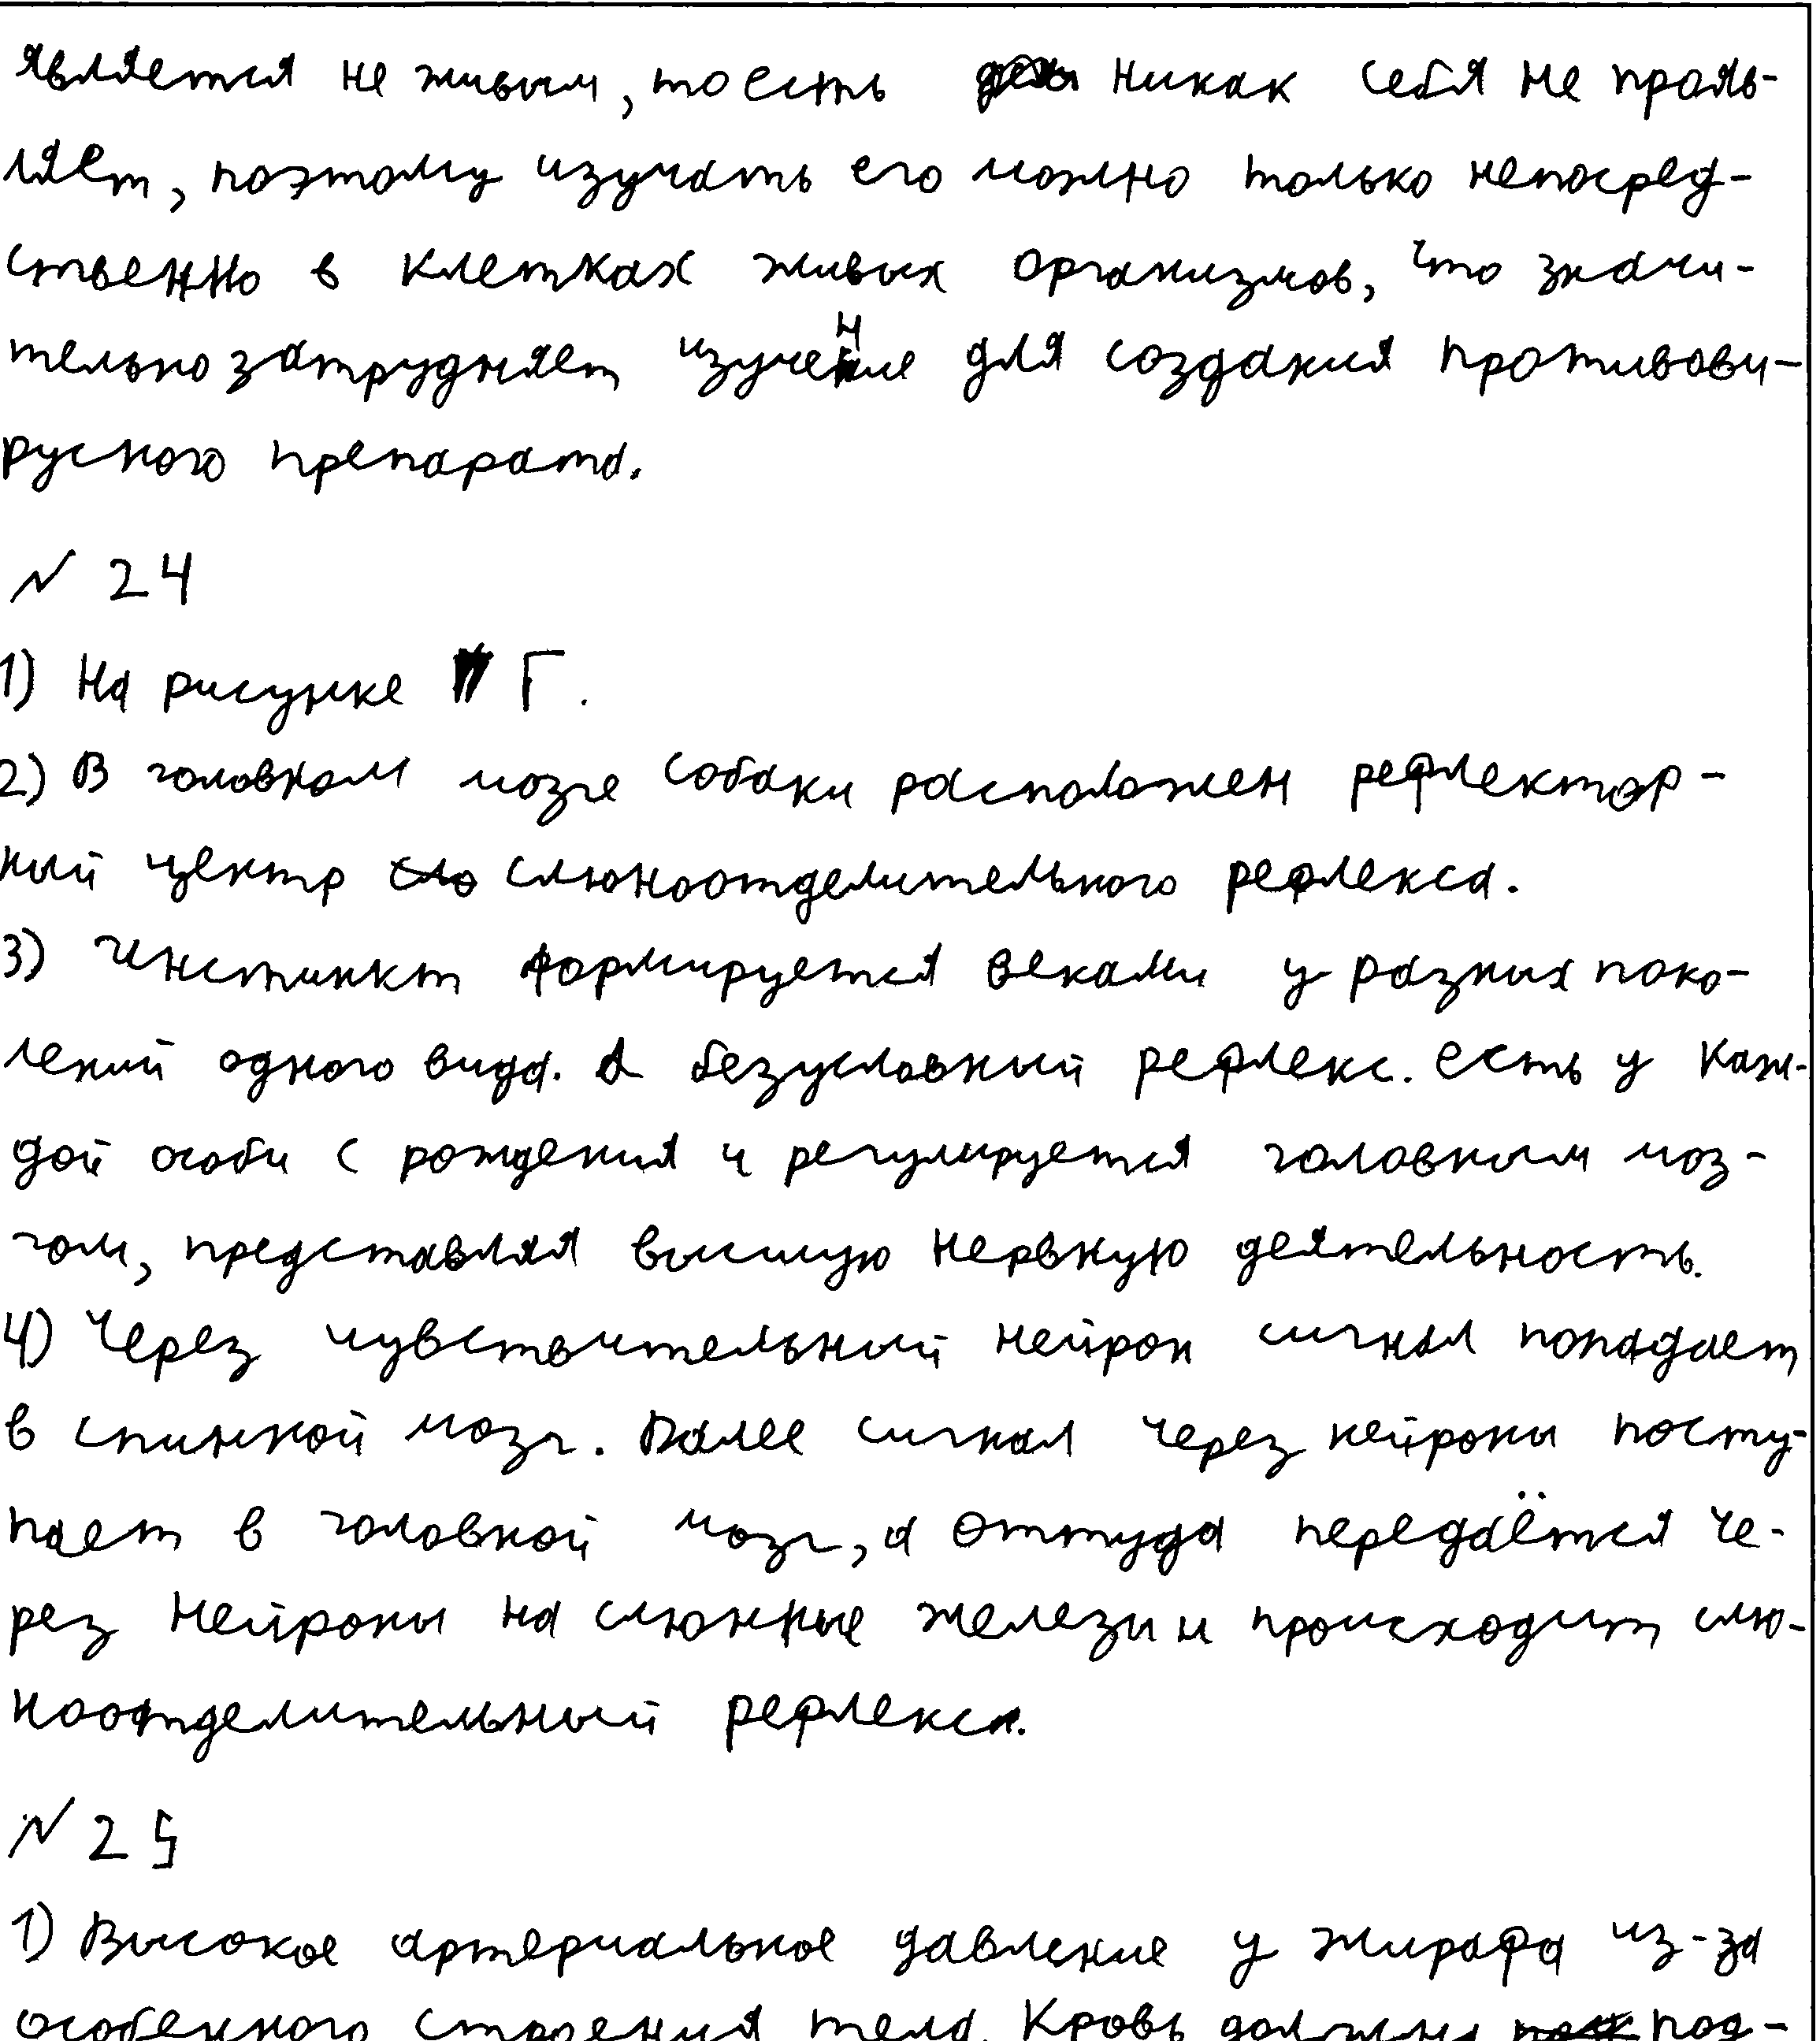 является не живым, то есть никак себя не прояв-
ляет, поэтому изучать его можно только непосред-
ственно в клетках живых организмов, что значи-
тельно затрудняет изучение для создания противови-
русного препарата.
№ 24
1) На рисунке Г.
2) В головном мозге собаки расположен рефлектор-
ный центр сло слюноотделительного рефлекса.
3) Инстинкт формируется веками у разных поко-
лений одного вида. А безусловный рефлекс. есть у каж-
дой особи с рождения и регулируется головным моз-
гом, представляя высшую нервную деятельность.
4) Через чувствительный нейрон сигнал попадает
в спинной мозг. Далее сигнал через нейроны посту-
пает в головной мозг, а оттуда передаётся че-
рез нейроны на слюнные железы и происходит слю-
ноотделительный рефлекс.
№ 25
1) Высокое артериальное давление у жирафа из-за
особенного строения тела. Кровь должна под-